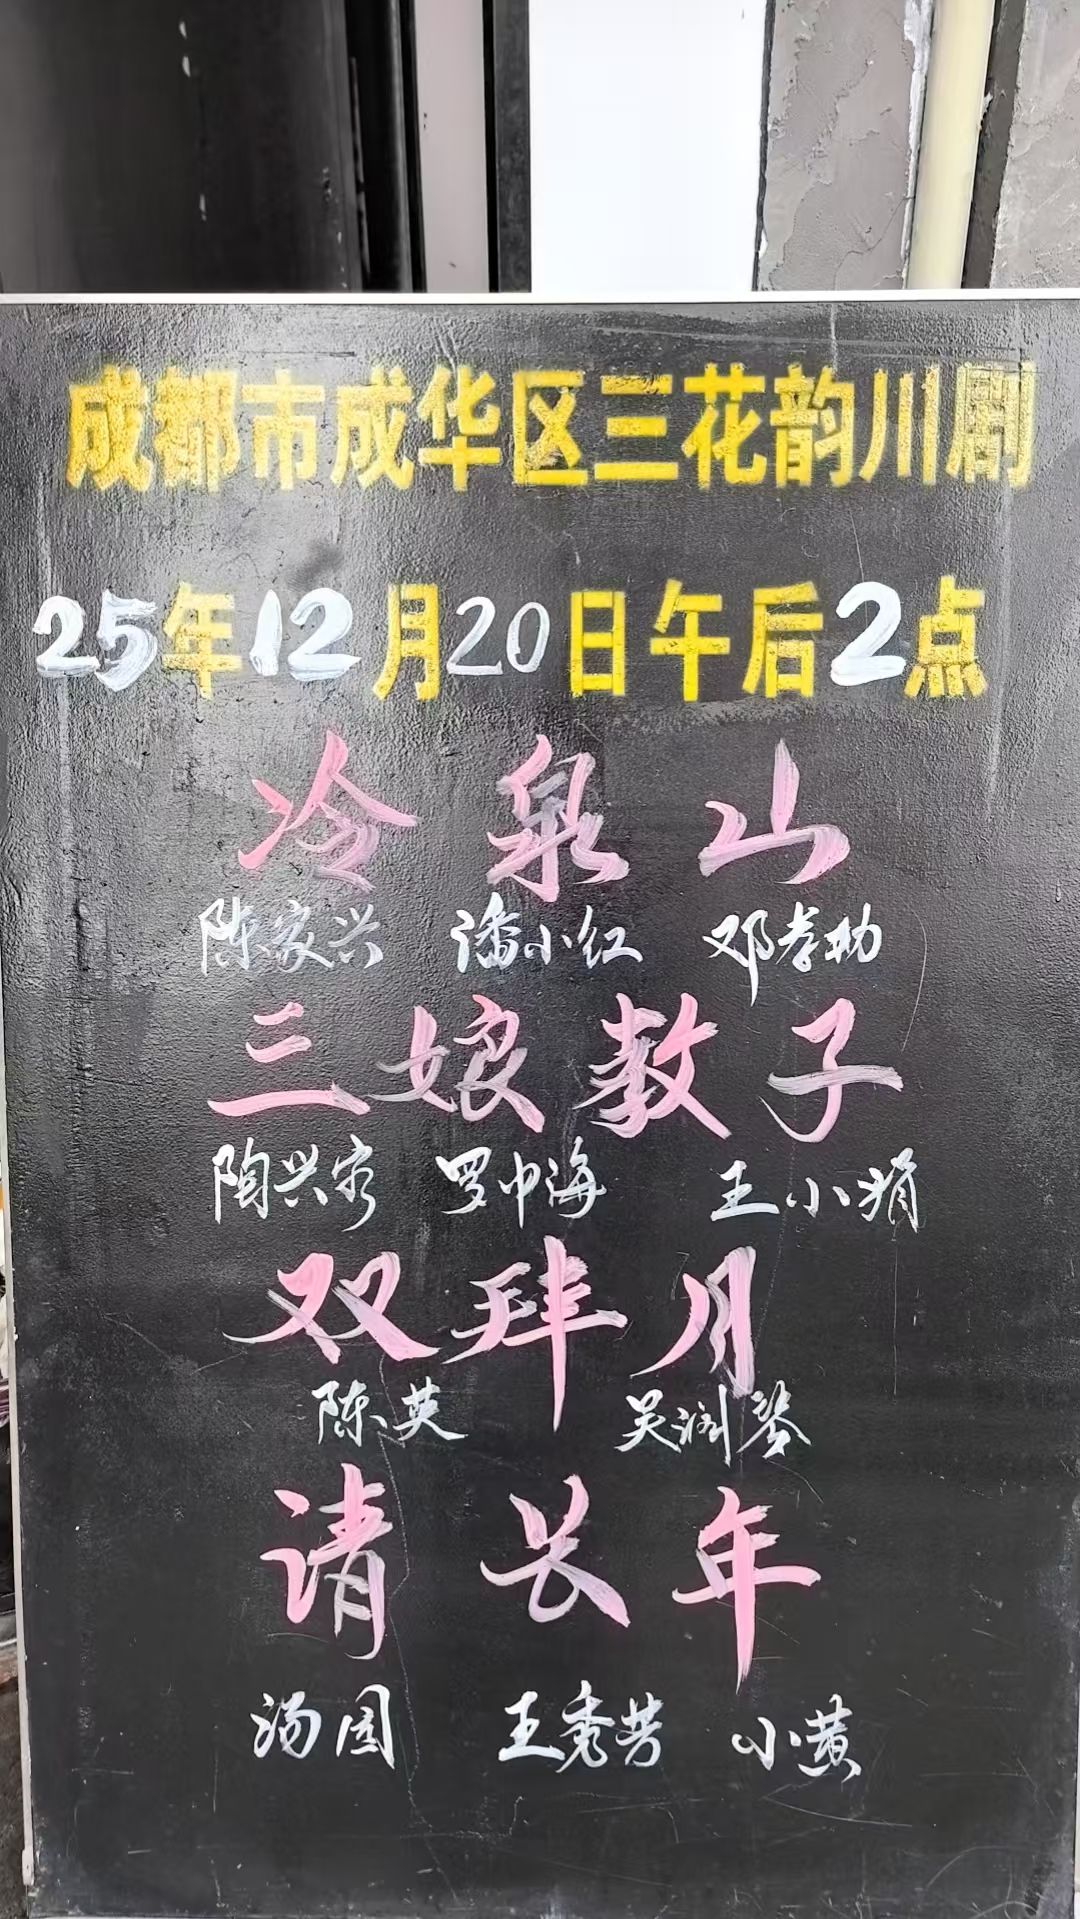 成都市成华区三花韵川剧
25年12月20日午后2点
冷泉山
陈家兴 潘小红 邓孝助
三娘教子
陶兴容 罗中海 王小娟
双肆月
陈英 吴润琴
请长年
汤园 王秀芳 小黄